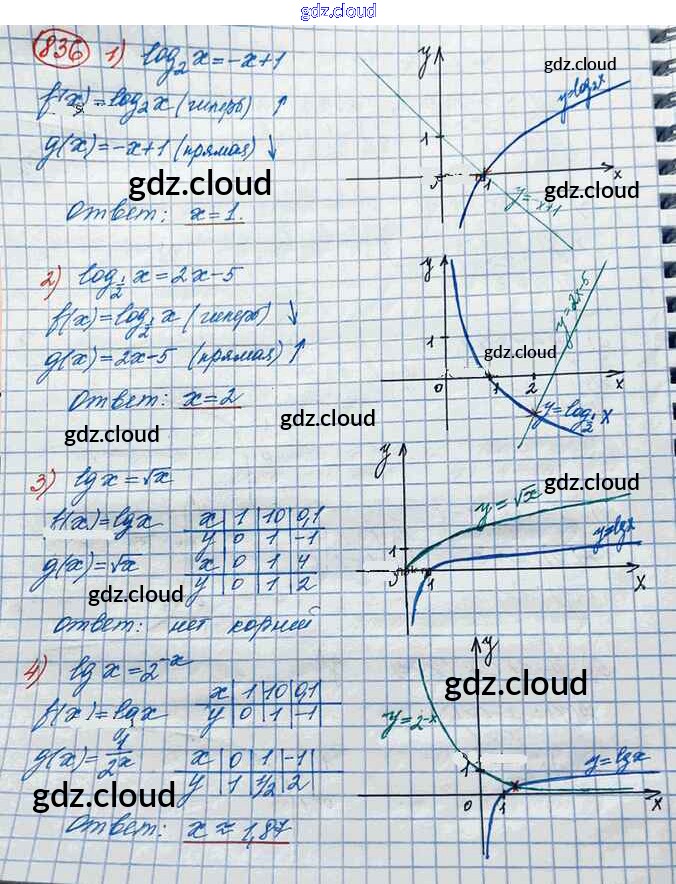 gdz.cloud
gdz.cloud
836 1) log₂x = -x+1
f(x) = log₂x (гиперб) ↑
g(x) = -x+1 (прямая) ↓
gdz.cloud
Ответ: x=1.
y
gdz.cloud
y=log₂x
1
0
1
x
gdz.cloud
y=-x+1
2) log½x = 2x-5
f(x) = log½x (гиперб) ↓
g(x) = 2x-5 (прямая) ↑
Ответ: x=2
gdz.cloud
gdz.cloud
y
y=2x-5
1
gdz.cloud
0
1
2
x
y=log½x
gdz.cloud
3) lg x = √x
f(x) = lg x
x | 1 | 10 | 0,1
y | 0 | 1 | -1
g(x) = √x
x | 0 | 1 | 4
y | 0 | 1 | 2
gdz.cloud
Ответ: нет корней
y
gdz.cloud
y=√x
y=lgx
1
1
x
gdz.cloud
4) lg x = 2⁻ˣ
f(x) = lgx
x | 1 | 10 | 0,1
y | 0 | 1 | -1
g(x) = 1/2ˣ
x | 0 | 1 | -1
y | 1 | 1/2 | 2
gdz.cloud
Ответ: x ≈ 1,87
y
gdz.cloud
y=2⁻ˣ
1
y=lgx
0
1
x
gdz.cloud